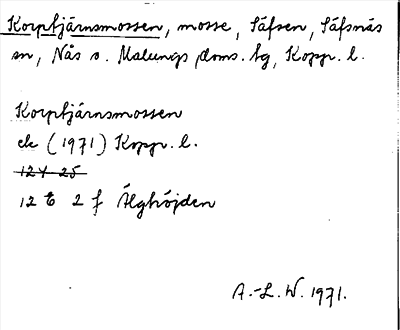 Korptjärnsmossen, mosse, Säfsen, Säfsnäs
sn, Nås o. Malungs doms. tg, Kopp. l.
Korptjärnsmossen
ek (1971) Kopp. l.
12 Y 25
12 E 2 f Älghöjden
A.-L. W. 1971.